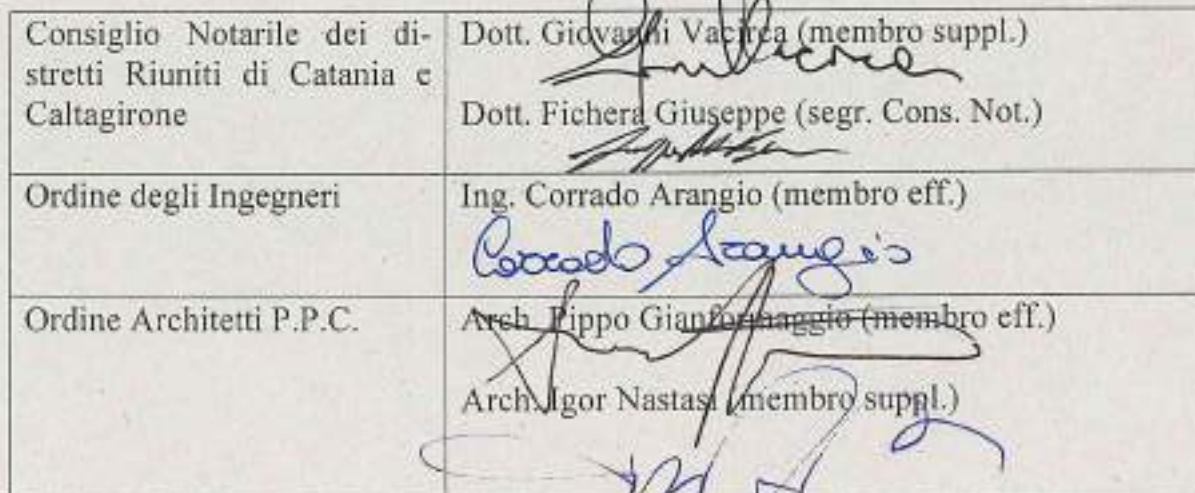 Consiglio Notarile dei di-
stretti Riuniti di Catania e
Caltagirone
Dott. Giovanni Vacirca (membro suppl.)
Dott. Fichera Giuseppe (segr. Cons. Not.)
Ordine degli Ingegneri
Ing. Corrado Arangio (membro eff.)
Corrado Arangio
Ordine Architetti P.P.C.
Arch. Pippo Gianformaggio (membro eff.)
Arch. Igor Nastasi (membro suppl.)